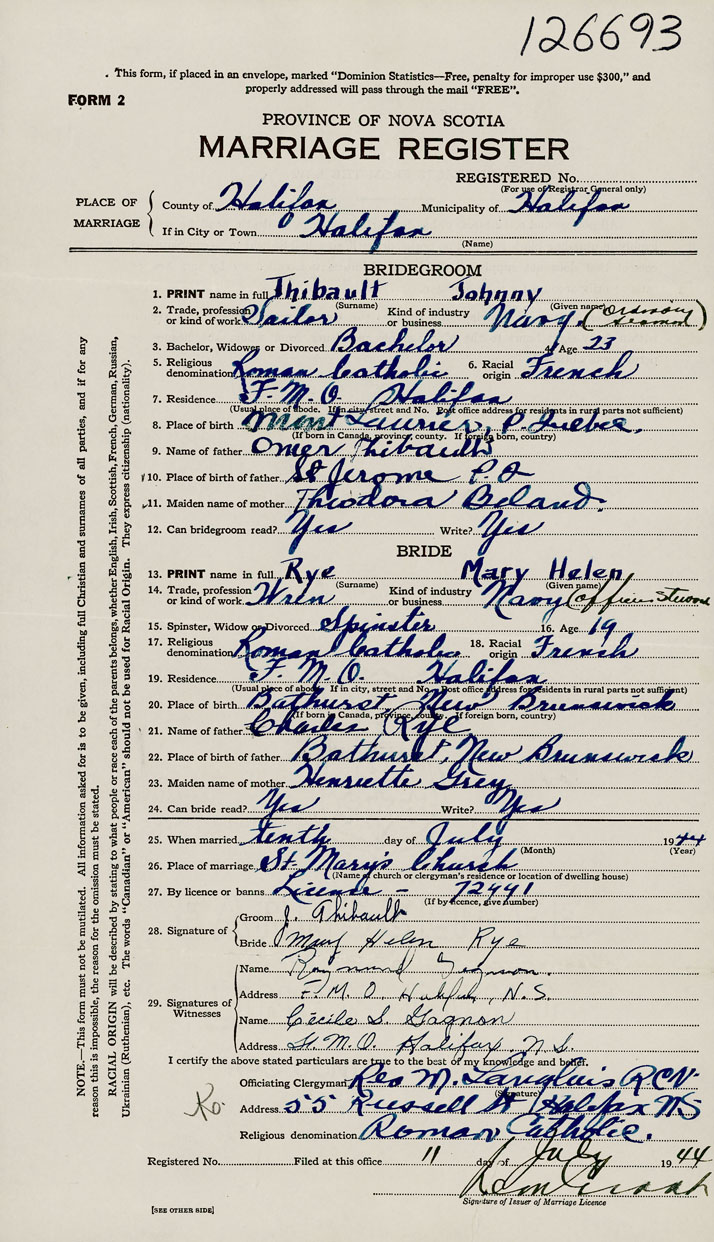 126693
. This form, if placed in an envelope, marked "Dominion Statistics—Free, penalty for improper use $300," and
properly addressed will pass through the mail "FREE".
FORM 2
PROVINCE OF NOVA SCOTIA
MARRIAGE REGISTER
REGISTERED No.
(For use of Registrar General only)
PLACE OF MARRIAGE
County of Halifax Municipality of Halifax
If in City or Town Halifax
(Name)
BRIDEGROOM
1. PRINT name in full Thibault Johnny
(Surname) (Given name)
2. Trade, profession or kind of work Sailor Kind of industry or business Navy (Ordinary Seaman)
3. Bachelor, Widower or Divorced Bachelor 4. Age 23
5. Religious denomination Roman Catholic 6. Racial origin French
7. Residence F. M. O. Halifax
(Usual place of abode. If in city, street and No. Post office address for residents in rural parts not sufficient)
8. Place of birth Mont Laurier, P. Quebec.
(If born in Canada, province, county. If foreign born, country)
9. Name of father Omer Thibault
10. Place of birth of father St Jerome P Q
11. Maiden name of mother Theodora Beland.
12. Can bridegroom read? Yes Write? Yes
BRIDE
13. PRINT name in full Rye Mary Helen
(Surname) (Given name)
14. Trade, profession or kind of work Wren Kind of industry or business Navy (Officers Steward
15. Spinster, Widow or Divorced Spinster 16. Age 19
17. Religious denomination Roman Catholic 18. Racial origin French
19. Residence F. M. O. Halifax
(Usual place of abode. If in city, street and No. Post office address for residents in rural parts not sufficient)
20. Place of birth Bathurst, New Brunswick
(If born in Canada, province, county. If foreign born, country)
21. Name of father Charles Rye
22. Place of birth of father Bathurst, New Brunswick
23. Maiden name of mother Henriette Grey
24. Can bride read? Yes Write? Yes
25. When married tenth day of July 1944
(Month) (Year)
26. Place of marriage St Marys Church
(Name of church or clergyman's residence or location of dwelling house)
27. By licence or banns License - 72441
(If by licence, give number)
28. Signature of
Groom J. Thibault
Bride Mary Helen Rye
29. Signatures of Witnesses
Name Raymond Gagnon.
Address F. M. O. Halifax, N.S.
Name Cécile S. Gagnon
Address F. M. O. Halifax, N.S.
I certify the above stated particulars are true to the best of my knowledge and belief.
Officiating Clergyman Leo M. Langlois RCN
(Signature)
Address 55 Russell St Halifax NS
Religious denomination Roman Catholic.
Registered No. Filed at this office 11 day of July 1944
Signature of Issuer of Marriage Licence
[SEE OTHER SIDE]
NOTE.—This form must not be mutilated. All information asked for is to be given, including full Christian and surnames of all parties, and if for any
reason this is impossible, the reason for the omission must be stated.
RACIAL ORIGIN will be described by stating to what people or race each of the parents belongs, whether English, Irish, Scottish, French, German, Russian,
Ukrainian (Ruthenian), etc. The words "Canadian" or "American" should not be used for Racial Origin. They express citizenship (nationality).